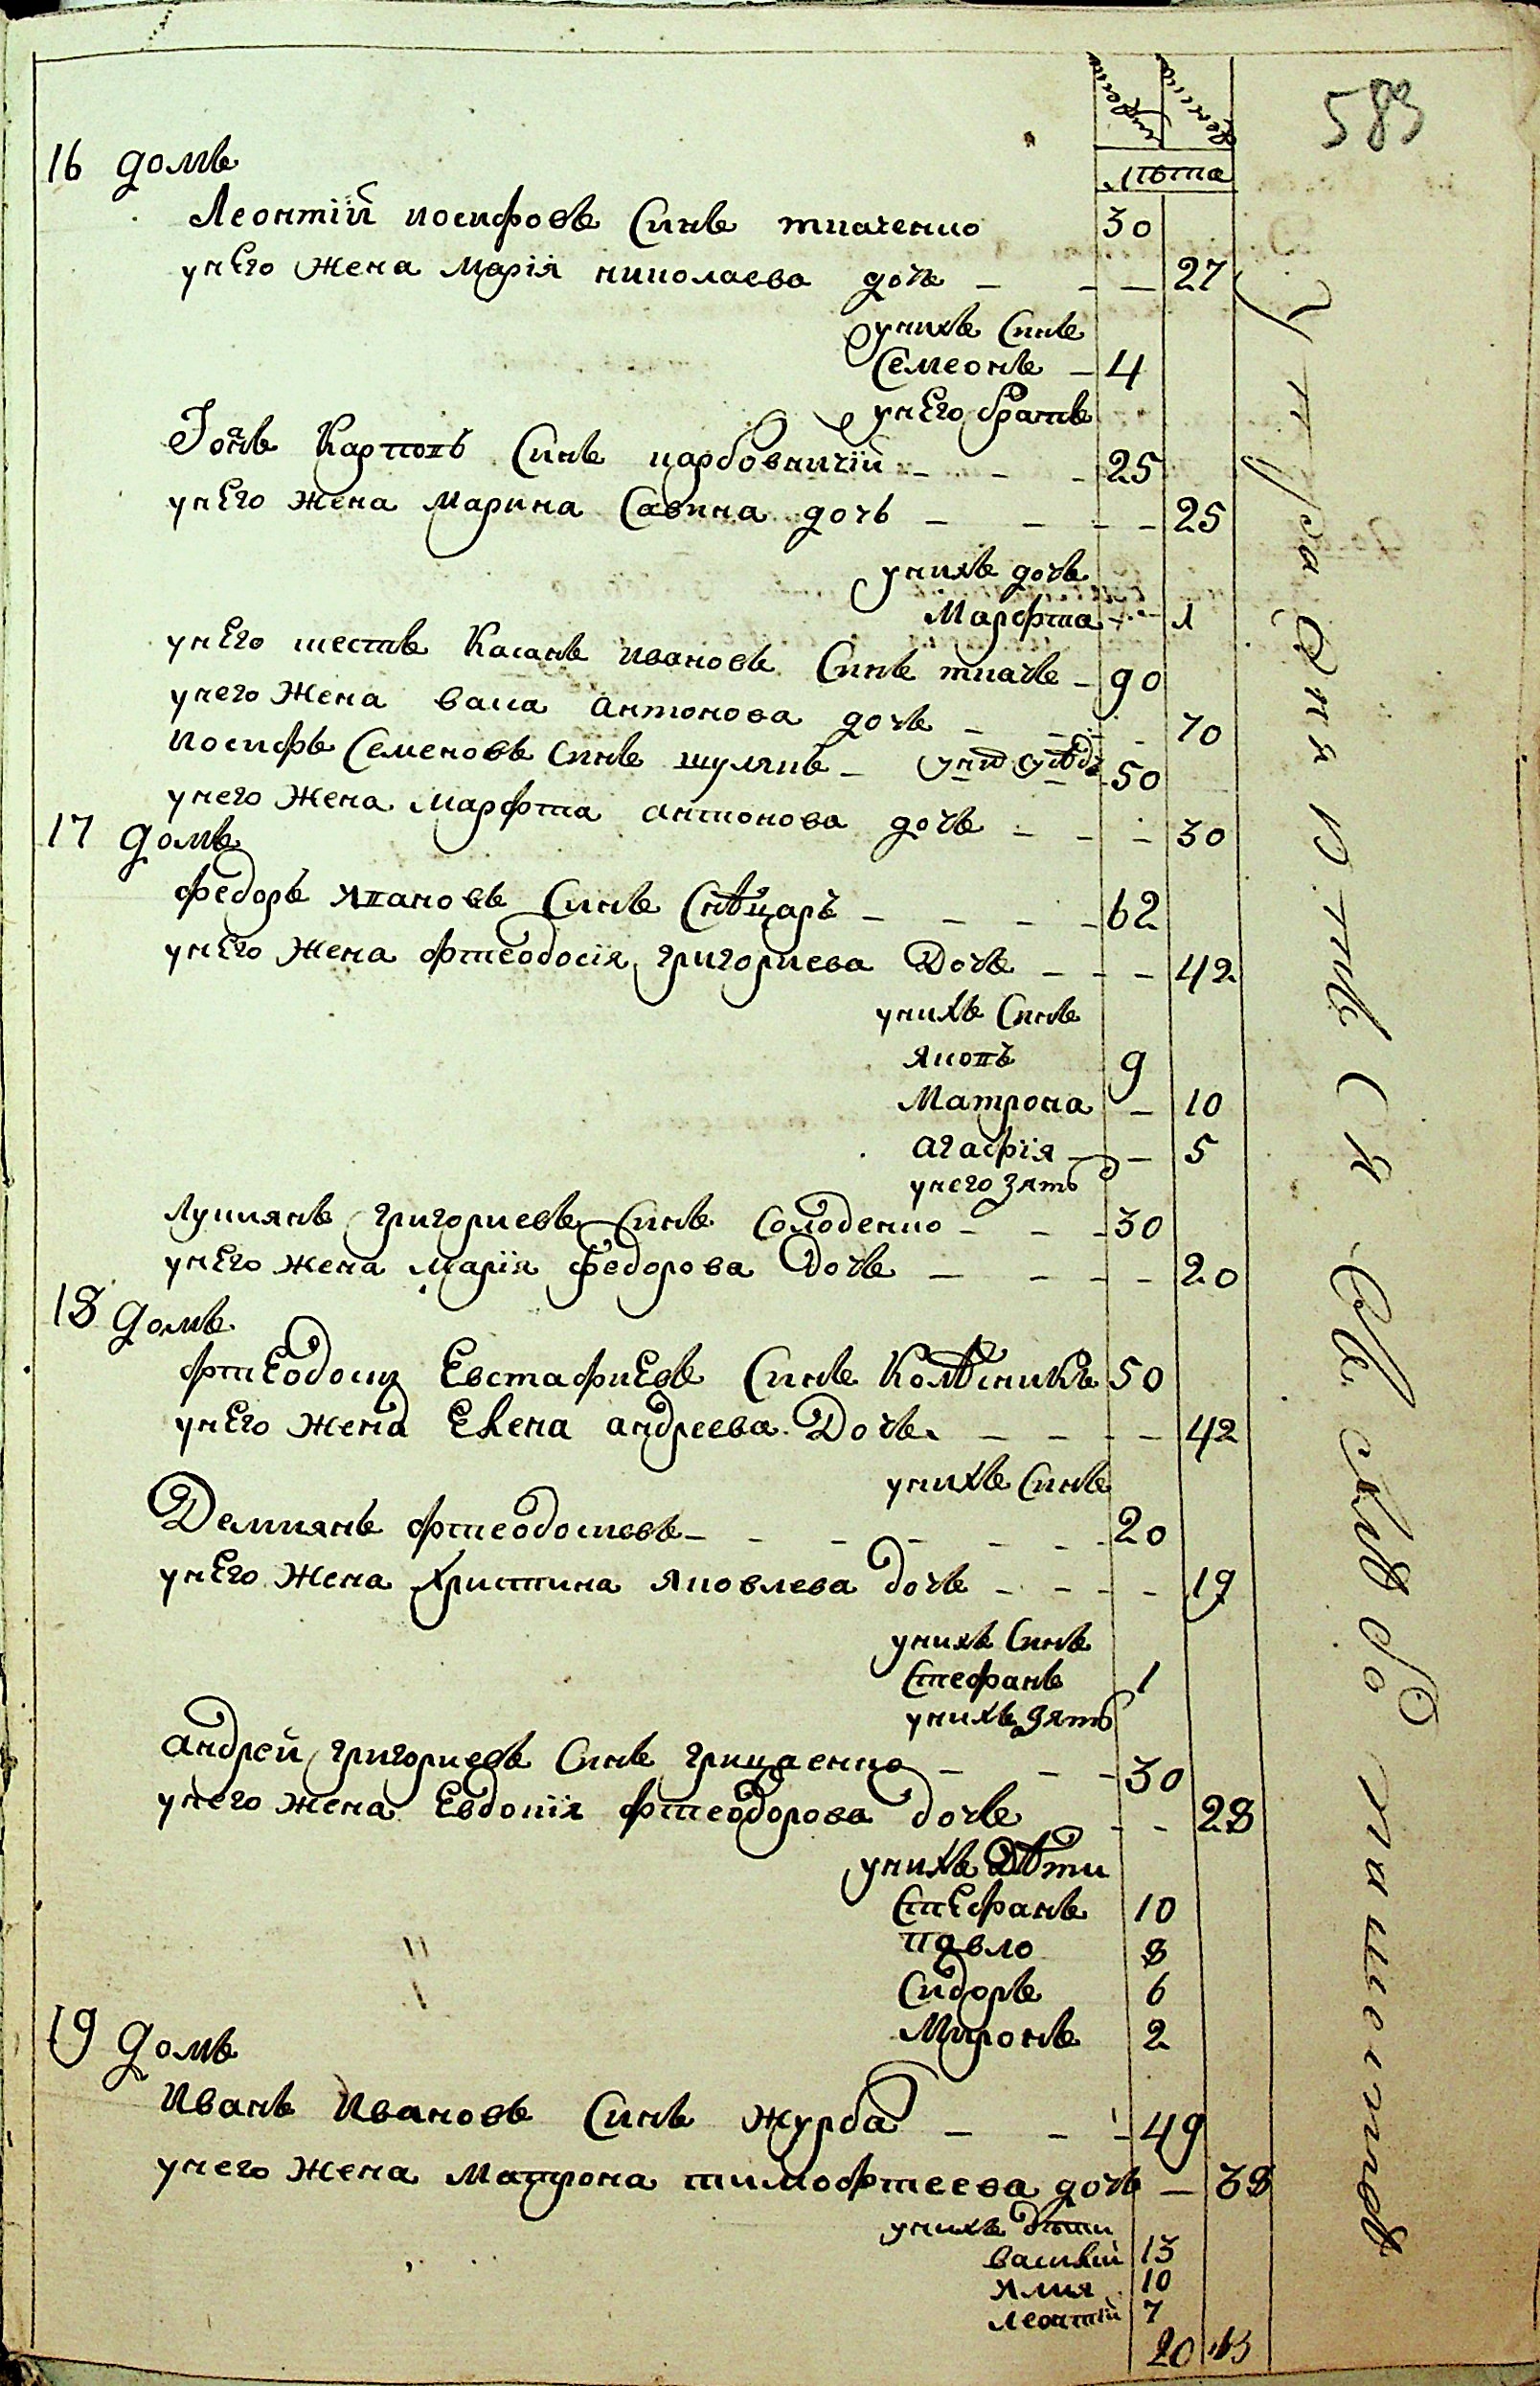 583
мужеска женска
лѣта
16 домъ
Леонтій иосифовъ Синъ ткаченко 30
унЕго жена Марія николаева дочъ – – – 27
унихъ Синъ
Семеонъ – 4
унЕго братъ
Іоанъ Карповъ Синъ карбовничій – – – 25
унЕго жена Марина Савина дочь – – – – 25
унихъ дочъ
Марфта – – 1
унЕго тестъ Касанъ ивановъ Синъ ткачъ – 90
унего жена васа антонова дочъ – – – 70
иосифъ Семеновъ синъ шулякъ – 50
унего жена марфта антонова дочъ – – – 30
17 домъ
федоръ Синъ Снѣцаръ – – – – 62
унЕго жена фтеодосія григориева Дочъ – – – 42
унихъ Синъ
якопъ 9
Матрона – 10
агафія – – 5
унего зять
лукиянъ григориевъ Синъ солоденко – – – 30
унЕго жена марія федорова Дочъ – – – – 20
18 домъ
фтЕодосии ЕвстафиЕвъ Синъ Колѣсникъ 50
унЕго жена Елена андреева Дочъ – – – – 42
унихъ Синъ
Демиянъ фтеодосиевъ – – – – – – 20
унЕго жена христина яковлева дочъ – – – – 19
унихъ Синъ
Стефанъ 1
унихъ зять
андрей григориевъ Синъ грицаенко – – – 30
унего жена Евдокія фтеодорова дочъ – – 28
унихъ Дѣти
СтЕфанъ 10
павло 8
Сидоръ 6
Миронъ 2
19 домъ
Иванъ Ивановъ Синъ журба – – – 49
унего жена Матрона тимофтеева дочъ – 38
унихъ дѣти
василий 13
илия 10
леонтій 7
20 13